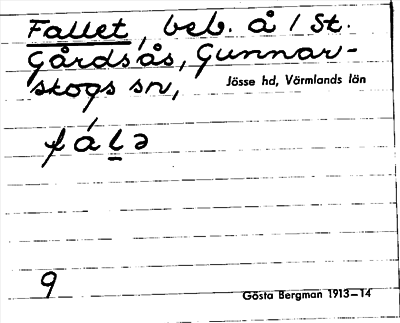 Fallet, beb. å 1 St.
Gårdsås, Gunnar-
skogs sn,
Jösse hd, Värmlands län
fálə
9
Gösta Bergman 1913–14